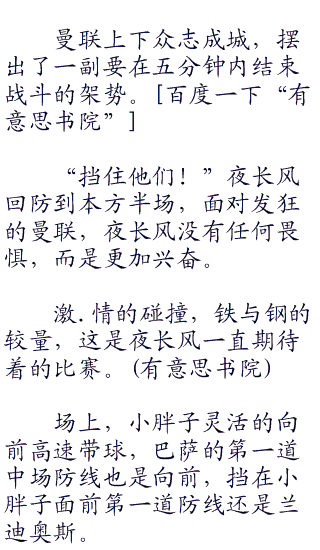 曼联上下众志成城，摆
出了一副要在五分钟内结束
战斗的架势。[百度一下“有
意思书院”]
“挡住他们！”夜长风
回防到本方半场，面对发狂
的曼联，夜长风没有任何畏
惧，而是更加兴奋。
激.情的碰撞，铁与钢的
较量，这是夜长风一直期待
着的比赛。(有意思书院)
场上，小胖子灵活的向
前高速带球，巴萨的第一道
中场防线也是向前，挡在小
胖子面前第一道防线还是兰
迪奥斯。